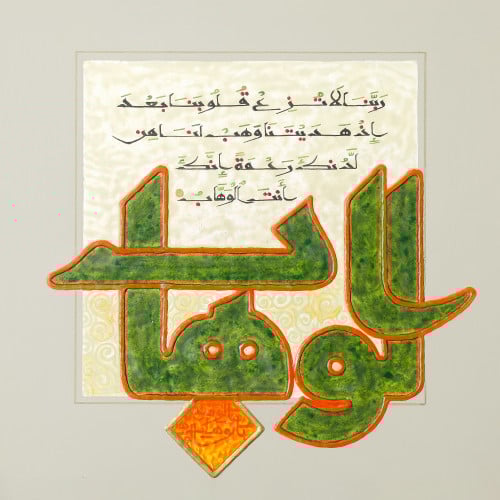 ربنا لا تزغ قلوبنا بعد
إذ هديتنا وهب لنا من
لدنك رحمة إنك
أنت الوهاب
الوهاب